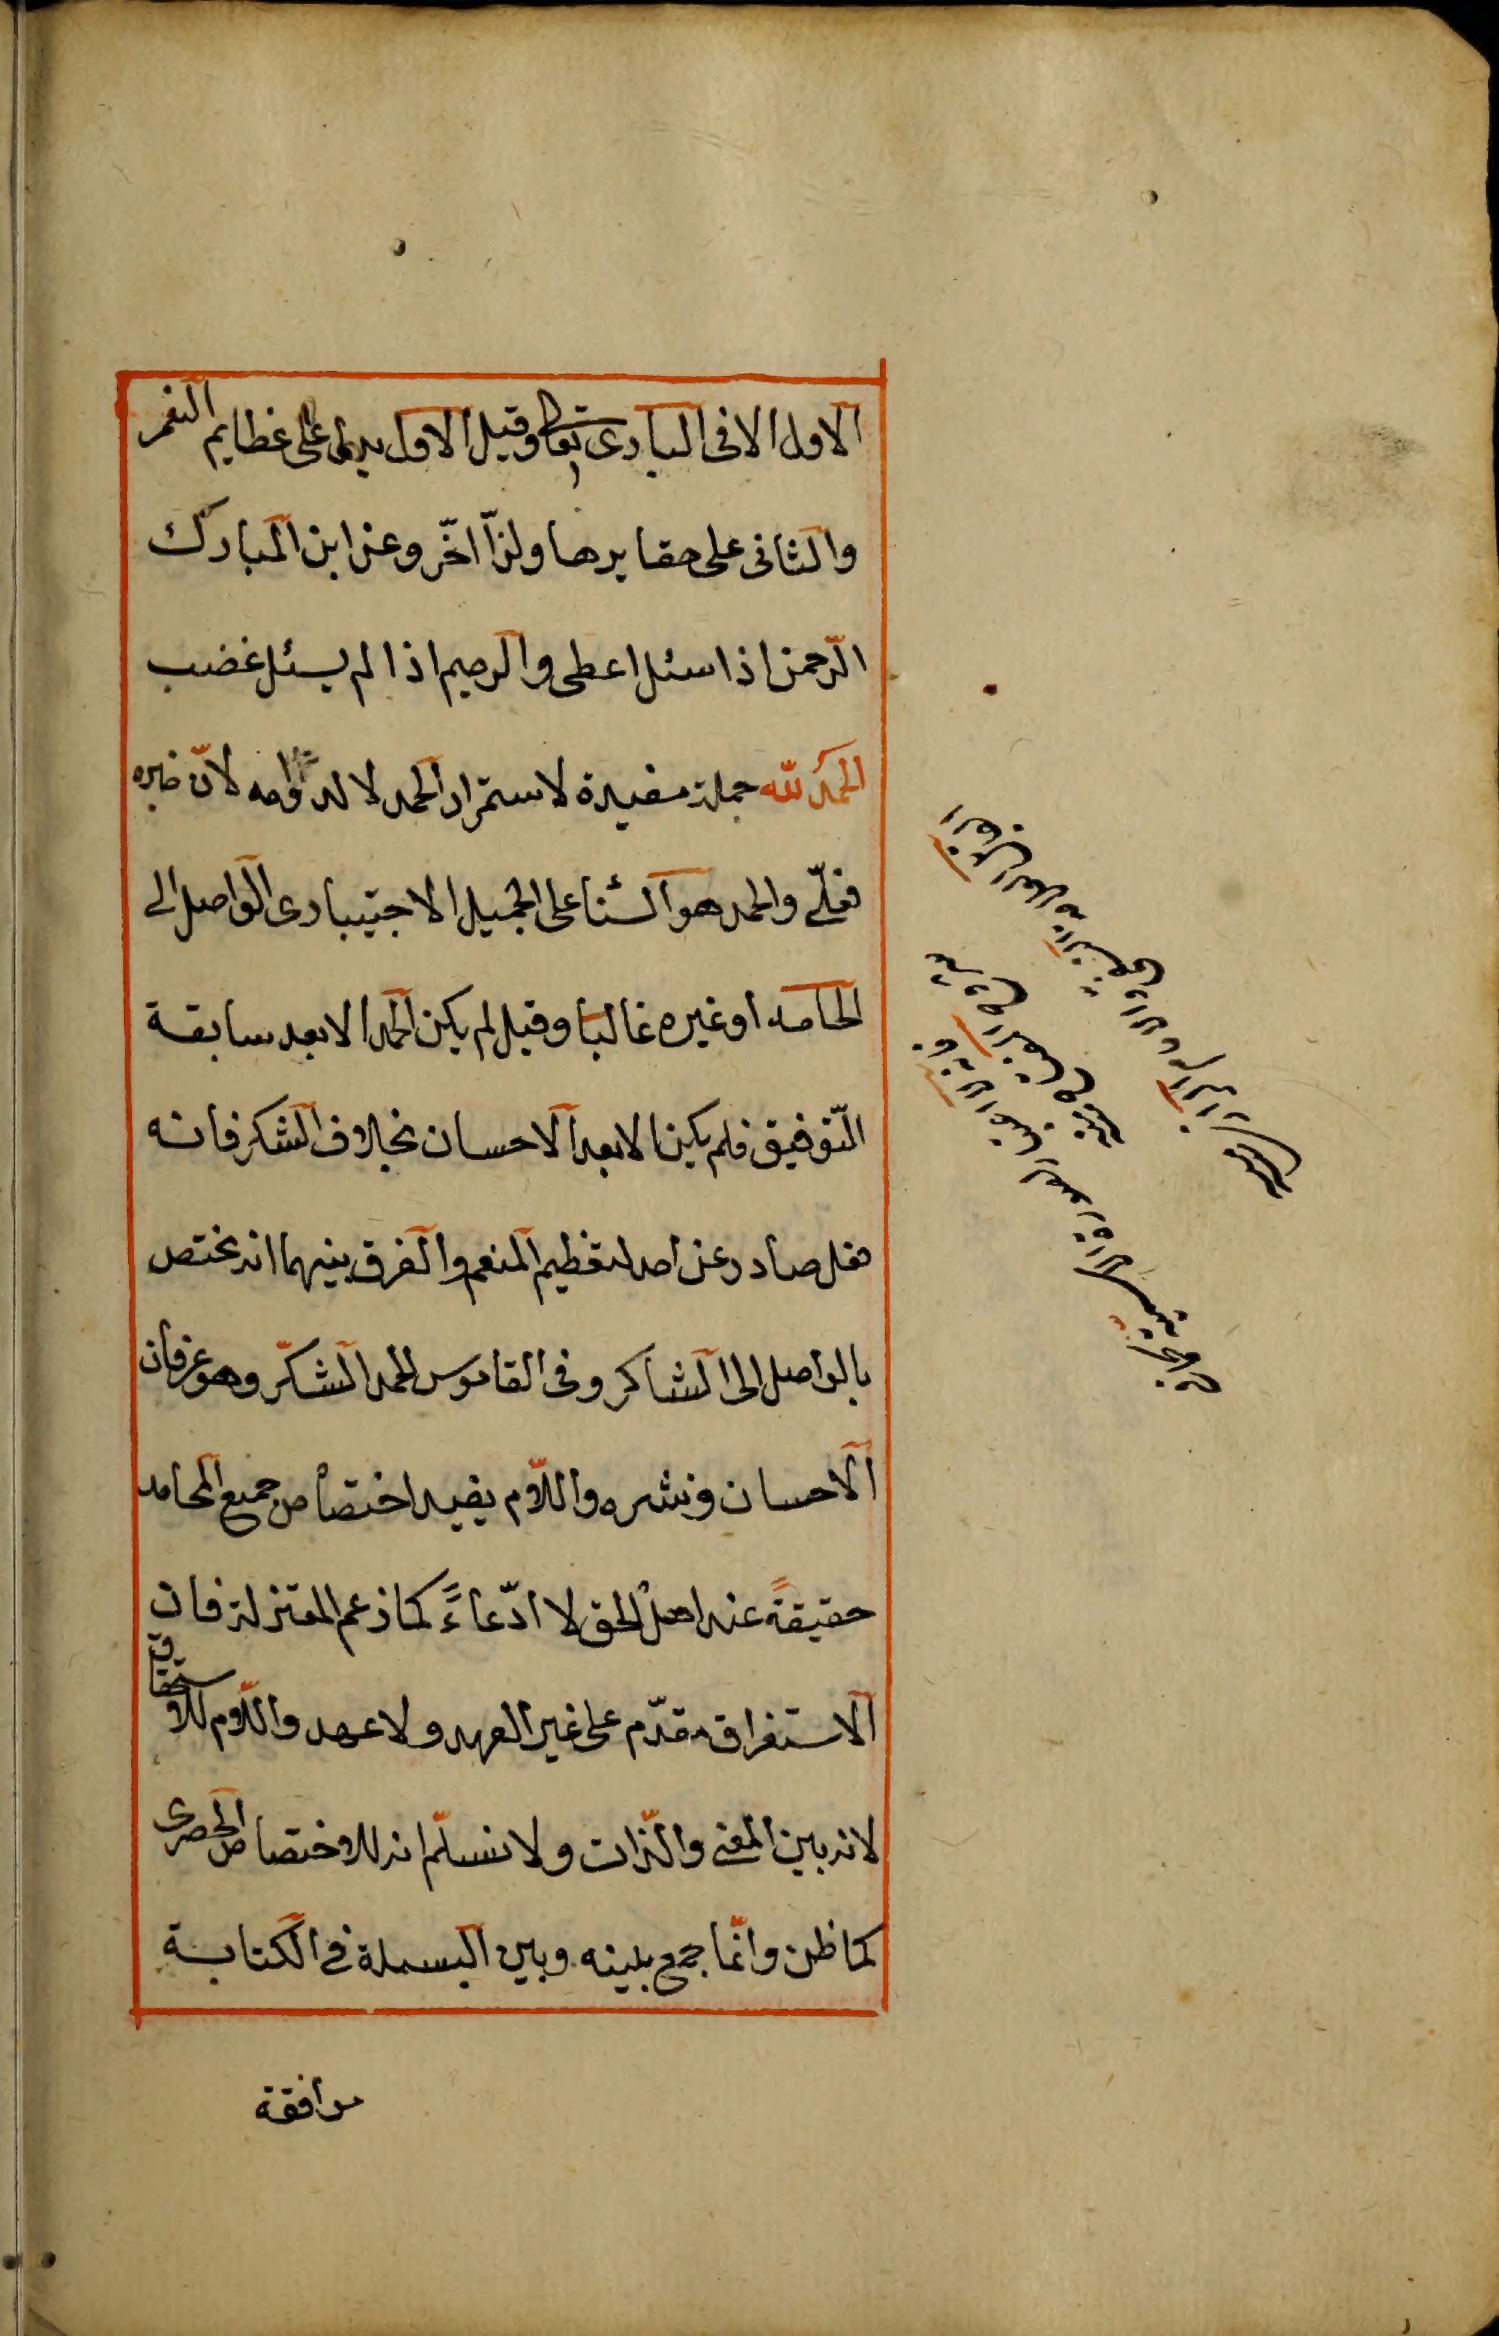 الاول الا فى البارى تعالى وقيل الاول يدل على عظايم النعم
والثانى على حقايرها ولذا اخّر وعن ابن المبارك
الرّحمن اذا سئل اعطى والرحيم اذا لم يسئل غضب
الحمد لله جملة مفيدة لاستمرار الحمد لا لدوامه لانّ خبره
فعلىّ والحمد هو الثنا على الجميل الاختيارى الواصل الى
الحامد او غيره غالبا وقيل لم يكن الحمد الا بعد سابقة
التّوفيق فلم يكن الا بعد الاحسان بخلاف الشكر فانه
فعل صادر عن احد لتعظيم المنعم والفرق بينهما انه يختص
بالواصل الى الشاكر وفى القاموس الحمد الشكر وهو عرفان
الاحسان ونشره واللّام يفيد اختصاص جميع المحامد
حقيقةً عند اهل الحق لا ادّعاءً كما زعم المعتزلة فان
الاستغراق مقدّم على غير العهد ولا عهد واللّام للاستحقاق
لانه بين المعنى والذّات ولا نسلّم انه للاختصاص الحصرى
كما ظن وانّما جمع بينه وبين البسملة فى الكتابة
موافقة